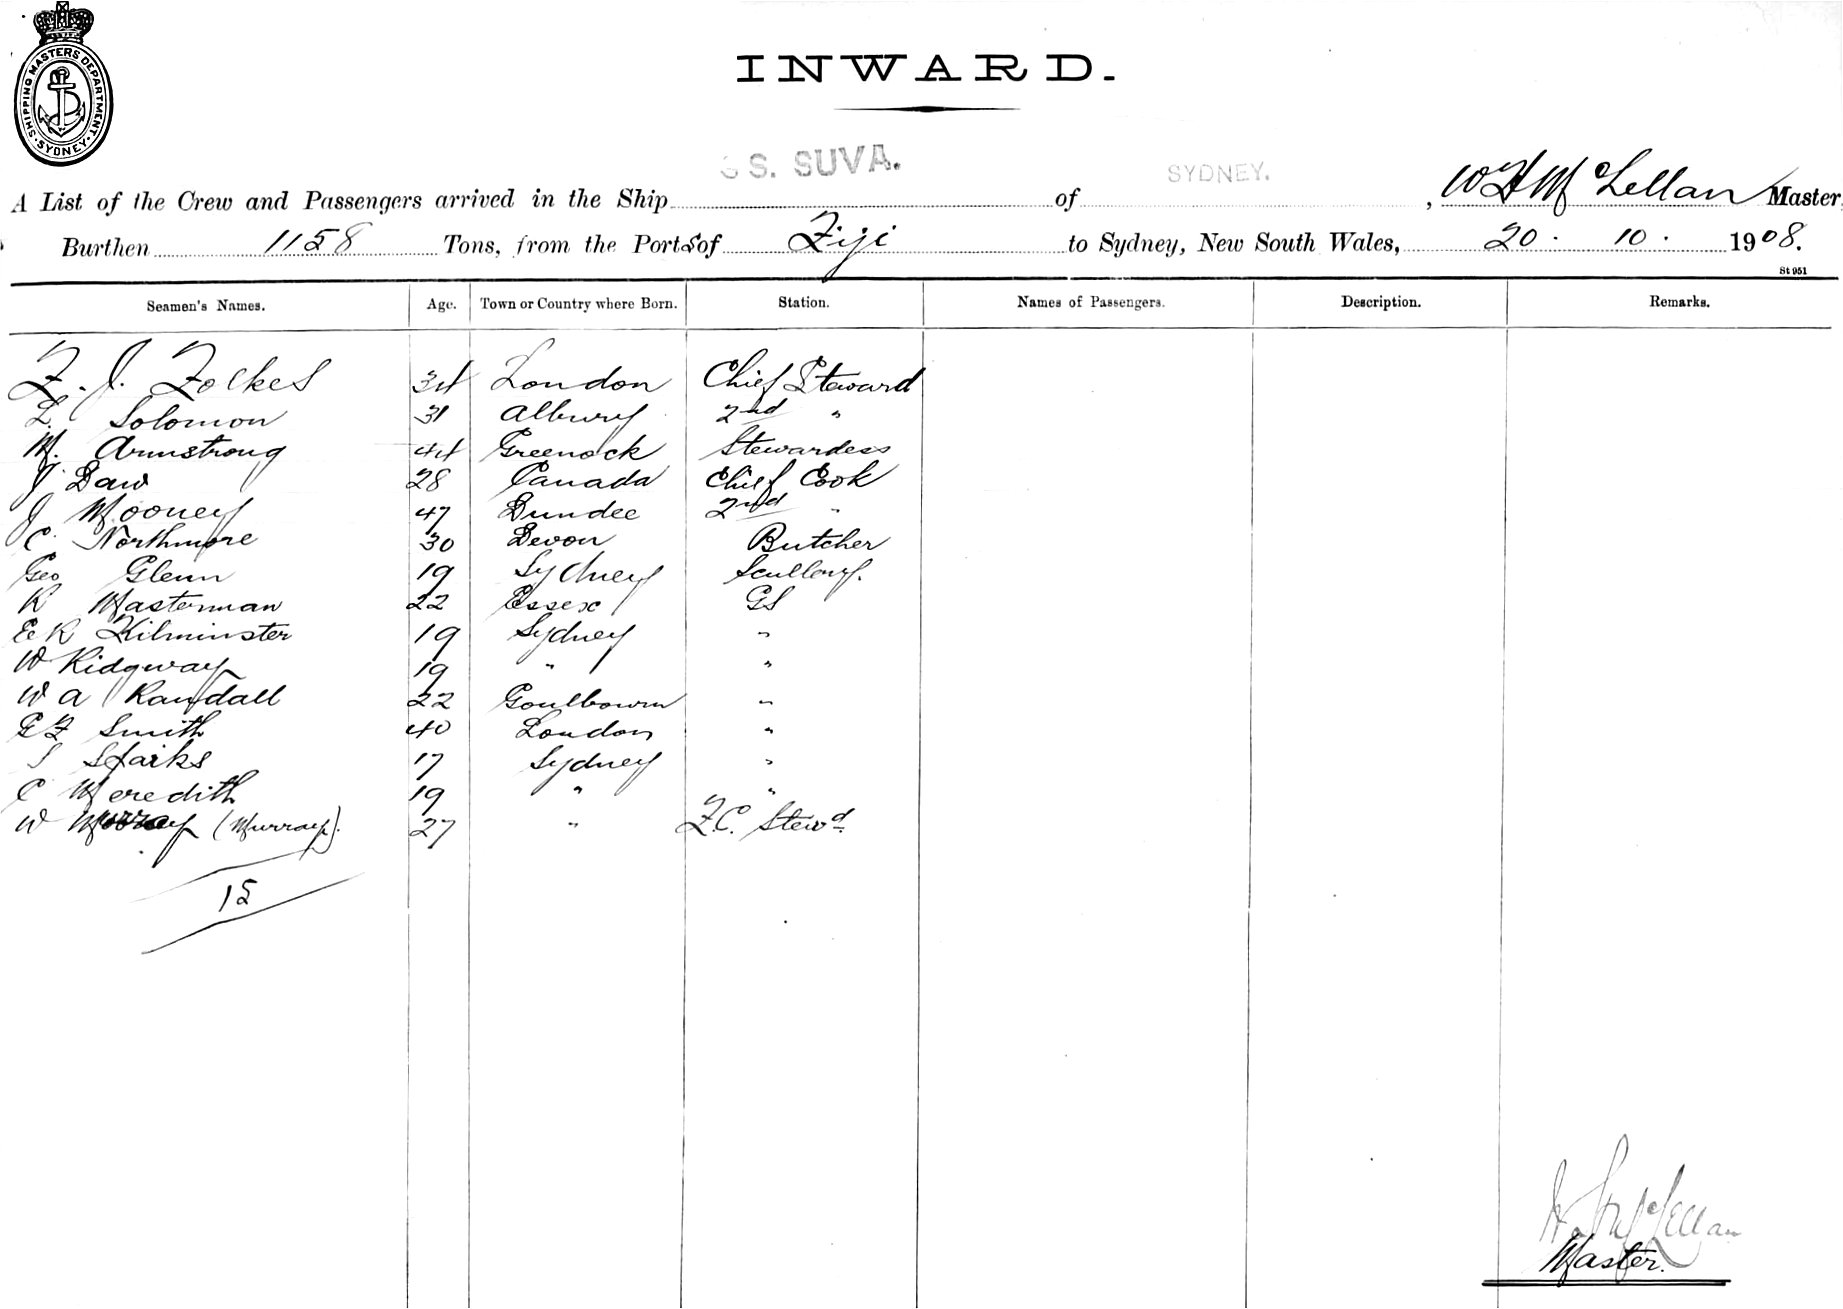 SHIPPING MASTERS DEPARTMENT
SYDNEY
INWARD.
S S. SUVA. SYDNEY.
A List of the Crew and Passengers arrived in the Ship of , W H McLellan Master,
Burthen 1158 Tons, from the Ports of Fiji to Sydney, New South Wales, 20 . 10 . 1908.
St 951
Seamen's Names. Age. Town or Country where Born. Station. Names of Passengers. Description. Remarks.
F. J. Fockes 34 London Chief Steward
L Solomon 31 Albury 2nd "
M. Armstrong 44 Greenock Stewardess
J Daw 28 Canada Chief Cook
J Mooney 47 Dundee 2nd "
C. Northmore 30 Devon Butcher
Geo Glenn 19 Sydney Scullery.
R Masterman 22 Essex GS
E R Kilminster 19 Sydney "
W Ridgway 19 " "
W A Randall 22 Goulbourn "
E F Smith 40 London "
S Sparks 17 Sydney "
C Meredith 19 " "
W (Murray). 27 " F.C. Stewd
15
McLellan
Master.